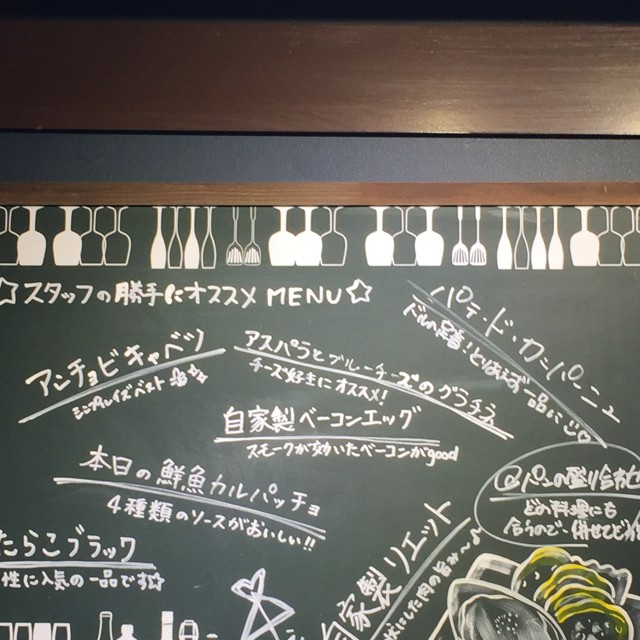 ☆スタッフの勝手にオススメ MENU☆
パテ・ド・カンパーニュ
とりあえず一品に
アンチョビキャベツ
シンプルイズベスト
アスパラとブルーチーズのグラチネ
チーズ好きにオススメ!
自家製ベーコンエッグ
スモークが効いたベーコンがgood
本日の鮮魚カルパッチョ
4種類のソースがおいしい!!
たらこブラック
性に人気の一品です☆
自家製リエット
した肉の旨み〜♪
パンの盛り合わせ
どの料理にも
合うので、併せてどうぞ